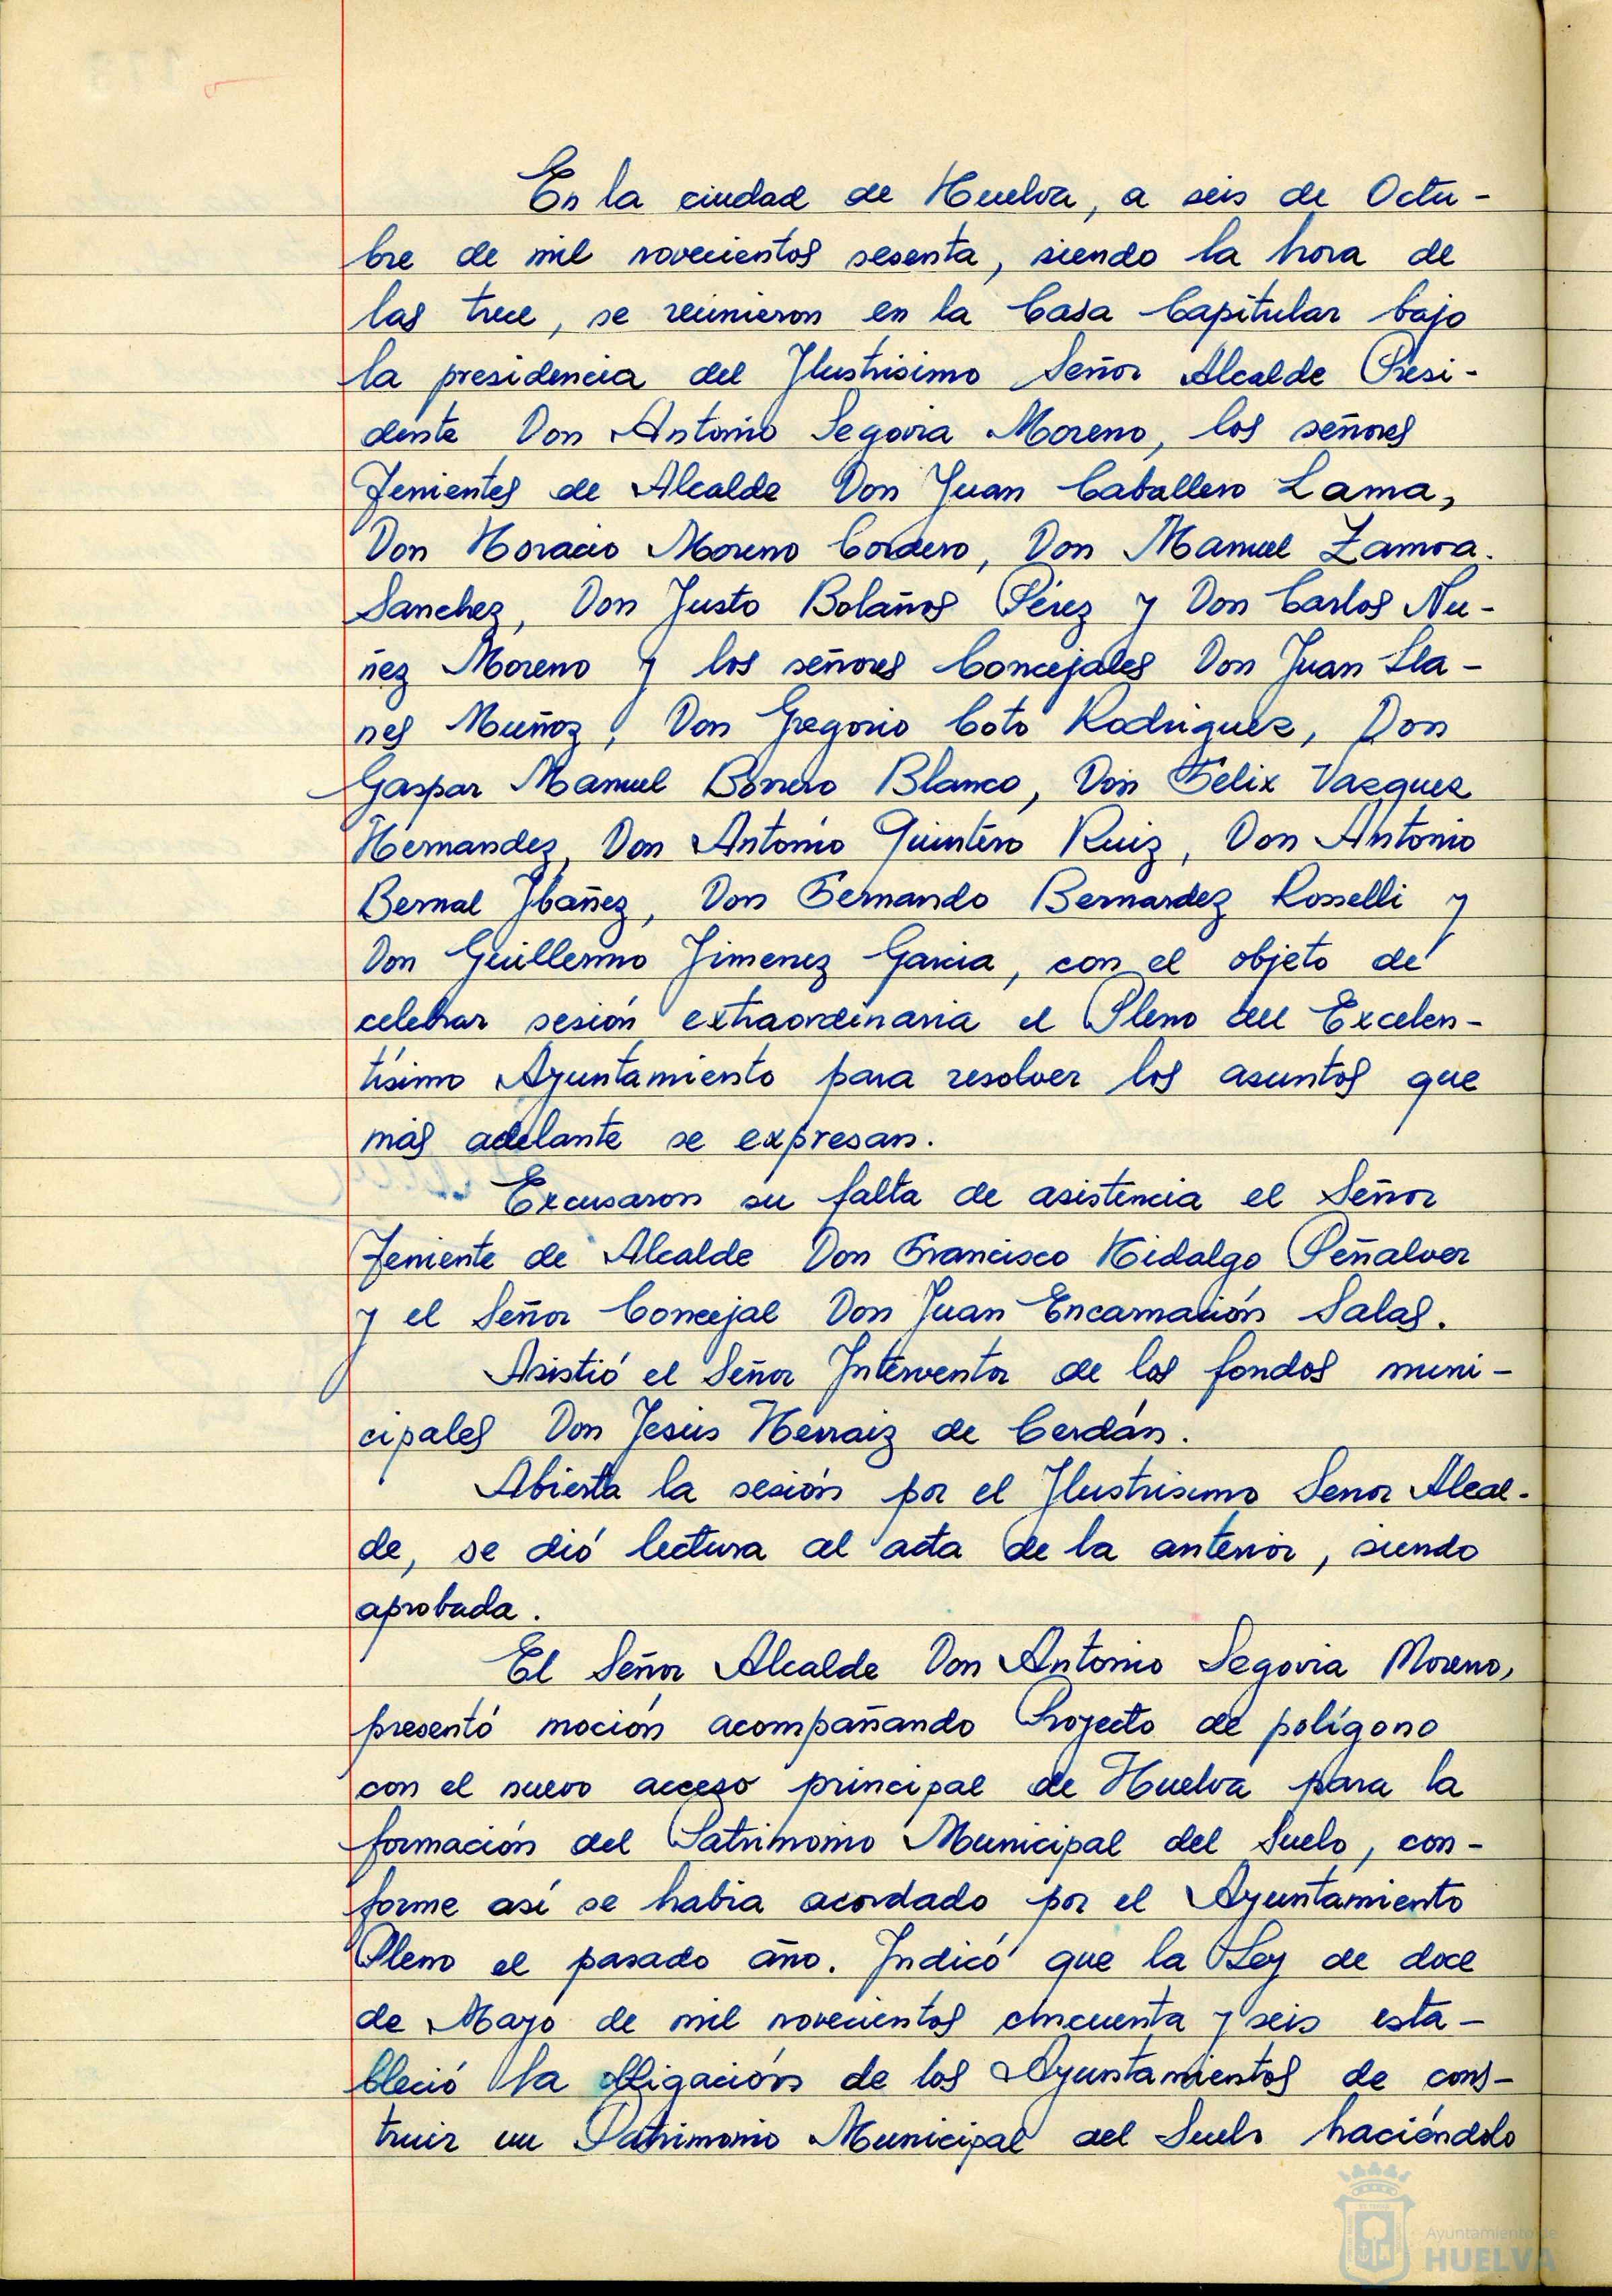 En la ciudad de Huelva, a seis de Octu-
bre de mil novecientos sesenta, siendo la hora de
las trece, se reunieron en la Casa Capitular bajo
la presidencia del Ilustrisimo Señor Alcalde Presi-
dente Don Antonio Segovia Moreno, los señores
Tenientes de Alcalde Don Juan Caballero Lama,
Don Horacio Moreno Cordero, Don Manuel Zamora
Sanchez, Don Justo Bolaños Pérez y Don Carlos Nu-
ñez Moreno y los señores Concejales Don Juan Lla-
nes Muñoz, Don Gregorio Coto Rodriguez, Don
Gaspar Manuel Borrero Blanco, Don Felix Vazquez
Hernandez, Don Antonio Quintero Ruiz, Don Antonio
Bernal Ibañez, Don Fernando Bernardez Rosselli y
Don Guillermo Jimenez Garcia, con el objeto de
celebrar sesión extraordinaria el Pleno del Excelen-
tísimo Ayuntamiento para resolver los asuntos que
más adelante se expresan.
Excusaron su falta de asistencia el Señor
Teniente de Alcalde Don Francisco Hidalgo Peñalver
y el Señor Concejal Don Juan Encarnación Salas.
Asistió el Señor Interventor de los fondos muni-
cipales Don Jesús Herraiz de Cerdán.
Abierta la sesión por el Ilustrisimo Senor Alcal-
de, se dió lectura al acta de la anterior, siendo
aprobada.
El Señor Alcalde Don Antonio Segovia Moreno,
presentó moción acompañando Proyecto de polígono
con el nuevo acceso principal de Huelva para la
formación del Patrimonio Municipal del Suelo, con-
forme así se habia acordado por el Ayuntamiento
Pleno el pasado año. Indicó que la Ley de doce
de Mayo de mil novecientos cincuenta y seis esta-
bleció la obligación de los Ayuntamientos de cons-
truir un Patrimonio Municipal del Suelo haciéndolo
Ayuntamiento de
HUELVA